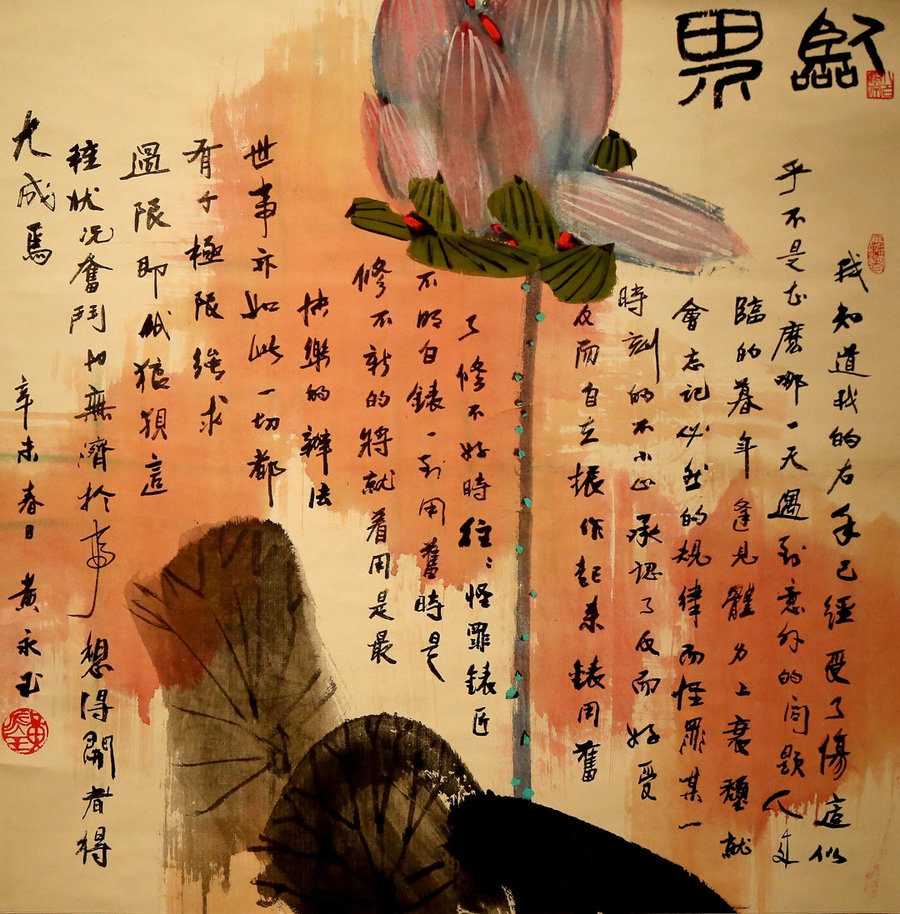 臨界
我知道我的右手已經受了傷這似
乎不是甚麼哪一天遇到意外的问题人
臨的暮年逢見體力上衰頹就
會忘记必然的規律而怪罪某一
時刻的不小心承認了反而好受
反而自在振作起来錶用舊
了修不好時往〻怪罪錶匠
不明白錶一到用舊時是
修不新的將就着用是最
快樂的辦法
世事亦如此一切都
有个極限強求
過限即成狼狽這
種狀况奮鬥也無濟於事想得開者得
大成焉
辛未春日 黄永玉